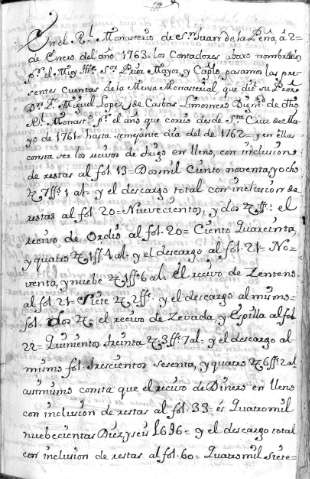 En el Rl. Monasterio de Sn. Juan de la Peña, a 2=
de Enero del año 1763. los Contadores abaxo nombrados
pr. el Muy Ille. Sr. Prior Mayor, y Capto. pasamos las pre-
sentes Cuentas de la Mensa Monasterial, que dió su Procr.
Dn. Fr. Miguel Lopez, de
Rl. Monastro. pr. el año que corrió desde Sta. Cruz de Ma-
yo de 1761. hasta semejante dia del de 1762. y en ellas
consta ser los recivos de trigo en lleno, con inclusion
de restas al fol. 13. Dos mil Ciento noventa, y ocho
y el descargo total con inclusion de
restas al fol. 20= Nuevecientos, y dos el
recivo de Ordio al fol. 20= Ciento Quarenta,
y quatro y el descargo al fol. 21. No-
venta, y nuebe El recivo de Zenteno
al fol. 21. Siete y el descargo al mismo
fol. dos el recivo de Zevada, y Espilla al fol.
22= Quinientos treinta y el descargo al
mismo fol. trescientos sesenta, y quatro
asimismo consta que el recivo de Dinero en lleno
con inclusion de restas al fol. 33. es Quatro mil
nuebecientas Diez y seis L 6 S 6= y el descargo total
con inclusion de restas al fol. 60. Quatro mil siete=